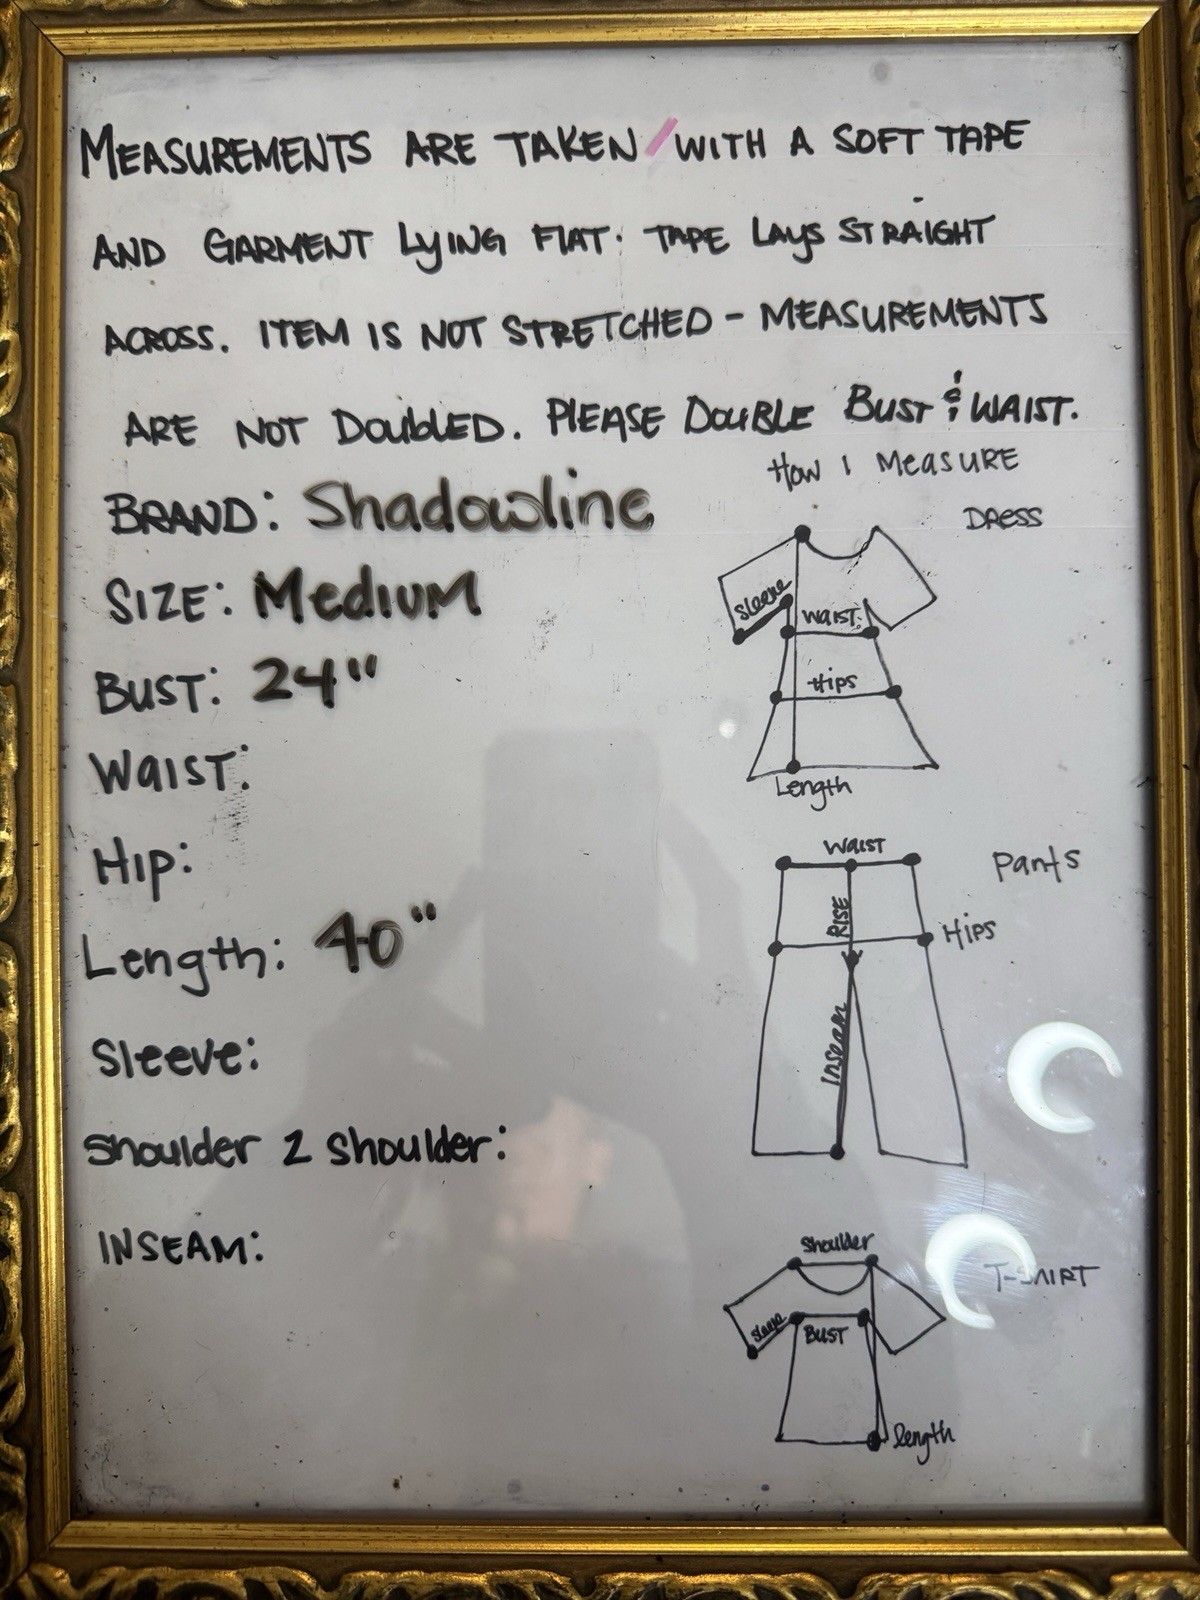 MEASUREMENTS ARE TAKEN / WITH A SOFT TAPE
AND GARMENT LYING FLAT. TAPE LAYS STRAIGHT
ACROSS. ITEM IS NOT STRETCHED - MEASUREMENTS
ARE NOT DOUBLED. PLEASE DOUBLE BUST & WAIST.
How I MEASURE
BRAND: Shadowline
DRESS
SIZE: MEDIUM
Sleeve
WAIST:
BUST: 24"
Hips
WAIST:
Length
Hip:
WAIST
Pants
RISE
Hips
Length: 40"
Inseam
Sleeve:
Shoulder 2 Shoulder:
INSEAM:
Shoulder
T-SHIRT
Sleeve
BUST
length